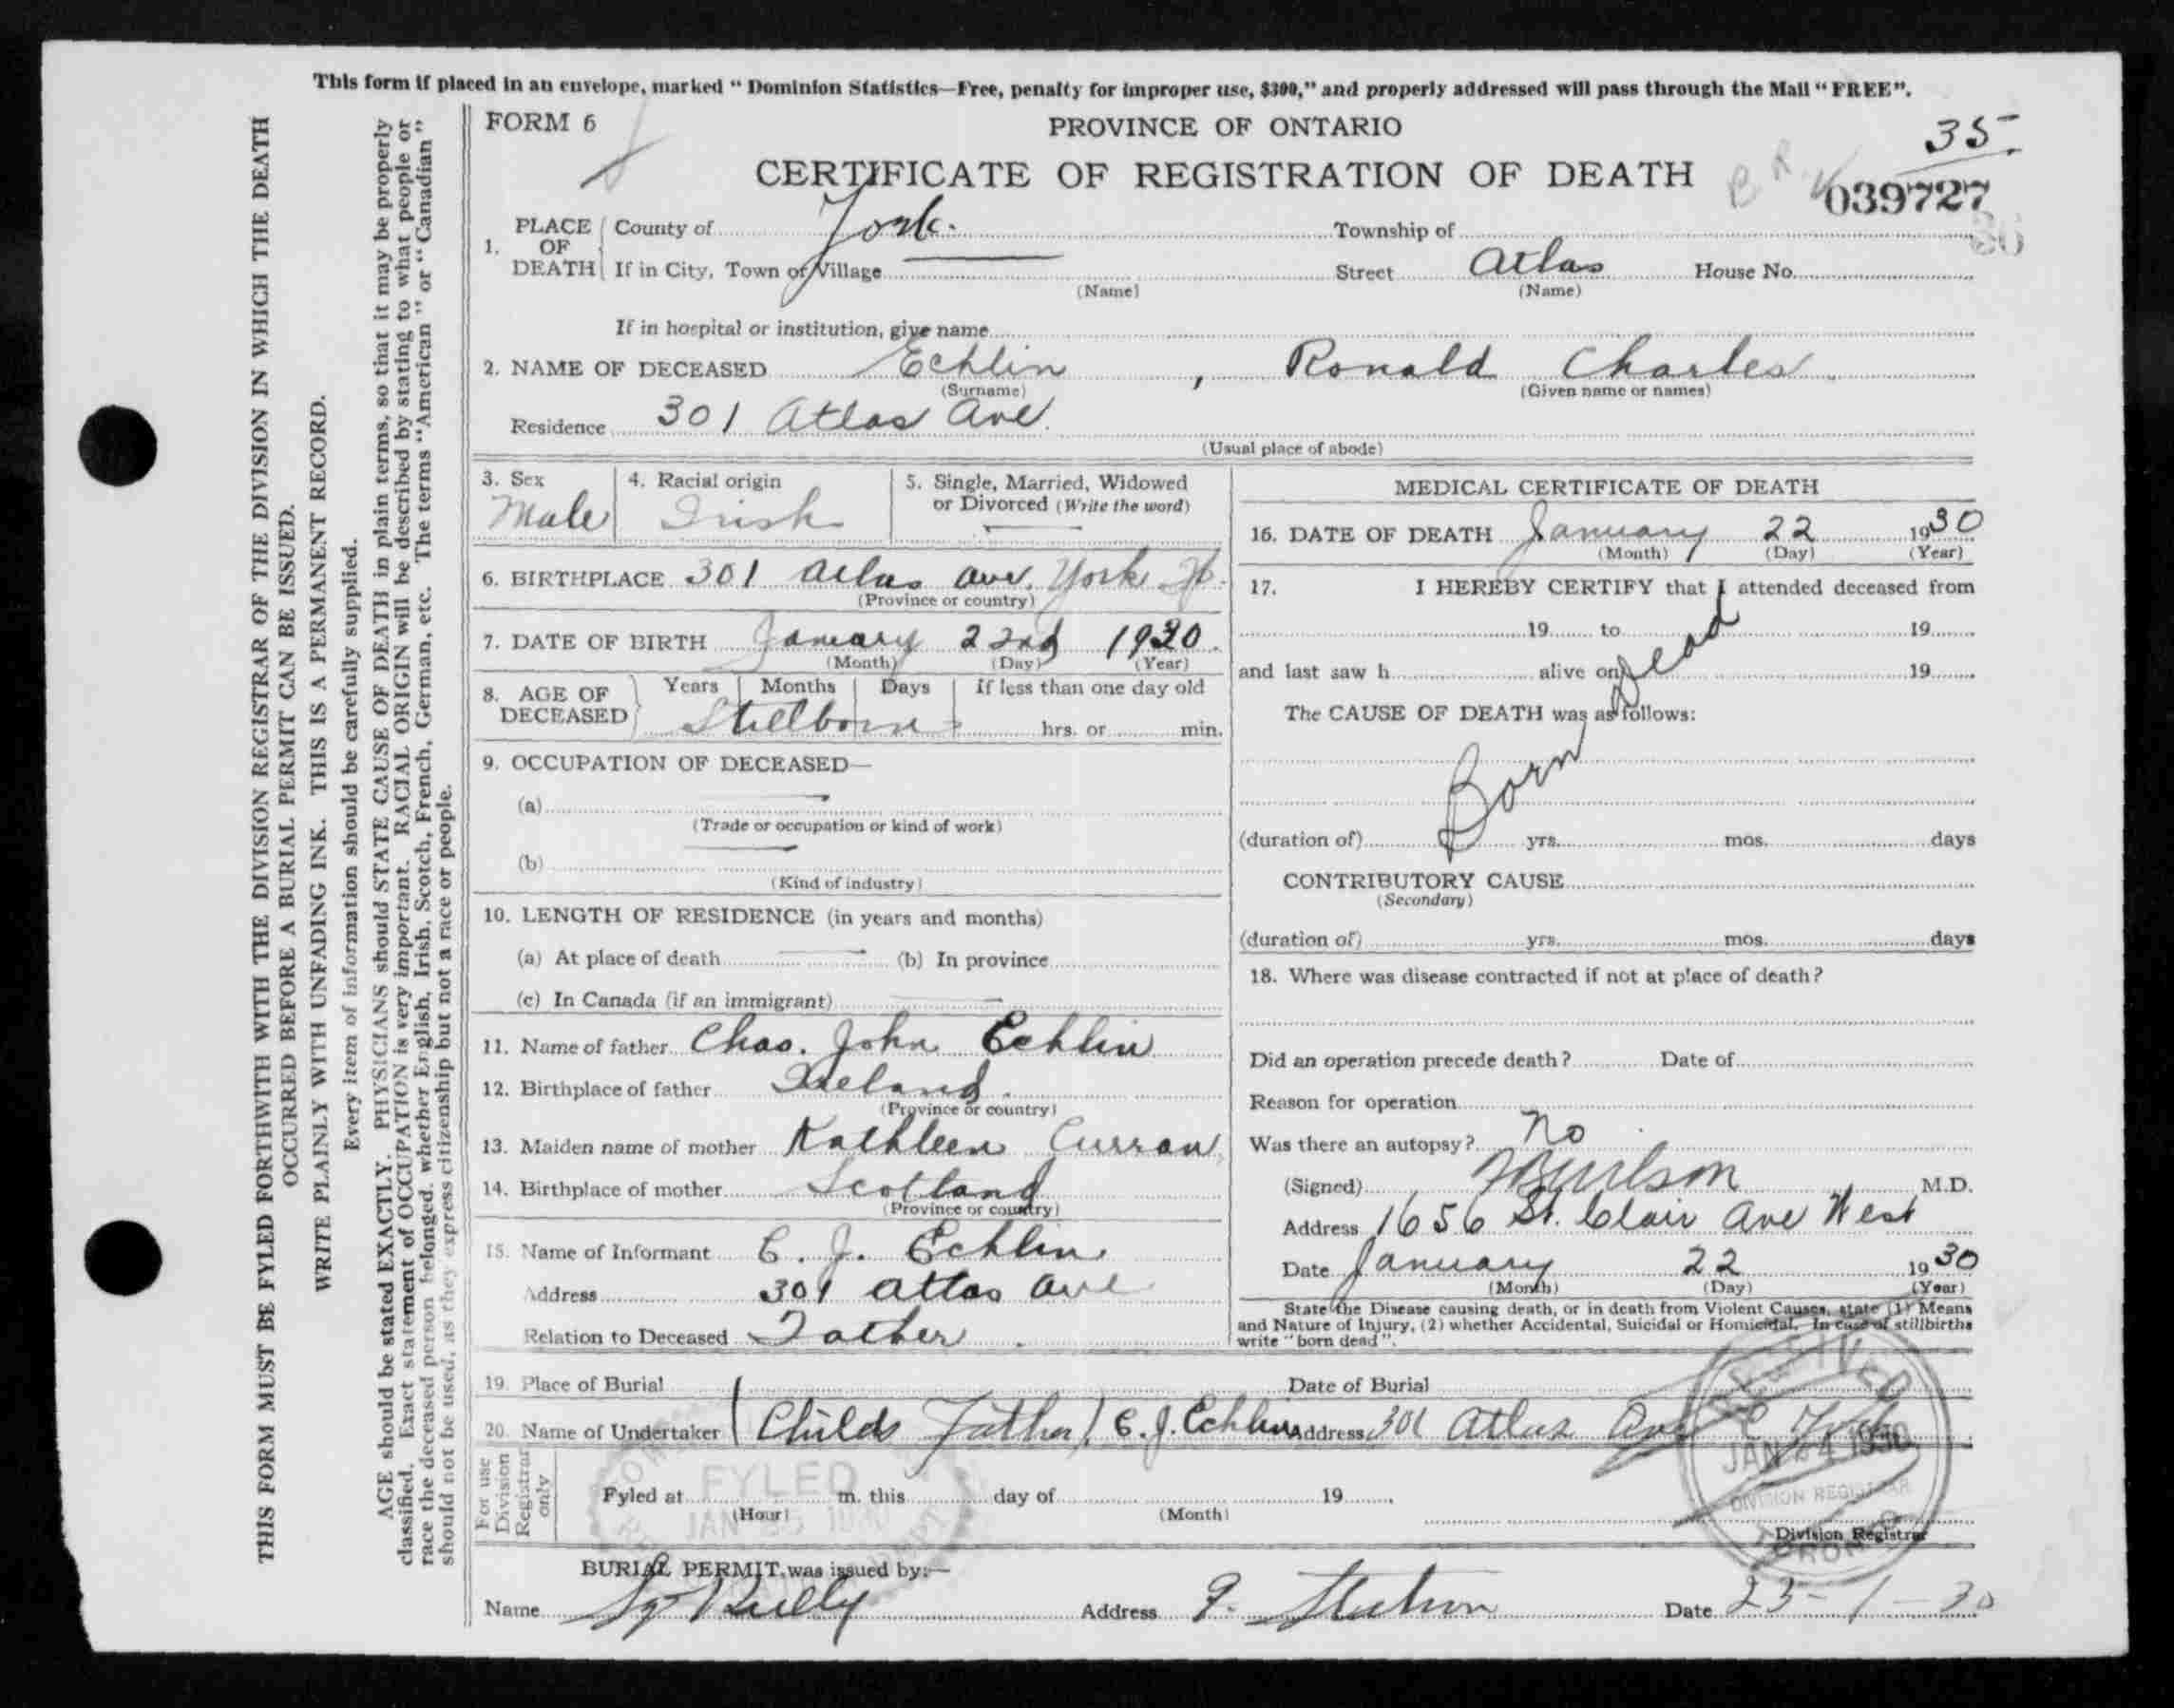 This form if placed in an envelope, marked “Dominion Statistics—Free, penalty for improper use, $300,” and properly addressed will pass through the Mail “FREE”.
THIS FORM MUST BE FYLED FORTHWITH WITH THE DIVISION REGISTRAR OF THE DIVISION IN WHICH THE DEATH
OCCURRED BEFORE A BURIAL PERMIT CAN BE ISSUED.
WRITE PLAINLY WITH UNFADING INK. THIS IS A PERMANENT RECORD.
Every item of information should be carefully supplied.
AGE should be stated EXACTLY. PHYSICIANS should STATE CAUSE OF DEATH in plain terms, so that it may be properly
classified. Exact statement of OCCUPATION is very important. RACIAL ORIGIN will be described by stating to what people or
race the deceased person belonged, whether English, Irish, Scotch, French, German, etc. The terms “American” or “Canadian”
should not be used, as they express citizenship but not a race or people.
FORM 6
PROVINCE OF ONTARIO
35
CERTIFICATE OF REGISTRATION OF DEATH
039727
1. PLACE OF DEATH County of York. Township of
If in City, Town or Village Street Atlas House No.
(Name) (Name)
If in hospital or institution, give name
2. NAME OF DECEASED Echlin, Ronald Charles
(Surname) (Given name or names)
Residence 301 Atlas Ave.
(Usual place of abode)
3. Sex Male
4. Racial origin Irish
5. Single, Married, Widowed
or Divorced (Write the word)
6. BIRTHPLACE 301 Atlas Ave. York
(Province or country)
7. DATE OF BIRTH January 22nd 1930.
(Month) (Day) (Year)
8. AGE OF DECEASED Years Months Days If less than one day old
Stillborn hrs. or min.
9. OCCUPATION OF DECEASED—
(a)
(Trade or occupation or kind of work)
(b)
(Kind of industry)
10. LENGTH OF RESIDENCE (in years and months)
(a) At place of death (b) In province
(c) In Canada (if an immigrant)
11. Name of father Chas. John Echlin
12. Birthplace of father Ireland
(Province or country)
13. Maiden name of mother Kathleen Curran
14. Birthplace of mother Scotland
(Province or country)
15. Name of Informant C. J. Echlin
Address 301 Atlas Ave
Relation to Deceased Father
MEDICAL CERTIFICATE OF DEATH
16. DATE OF DEATH January 22 1930
(Month) (Day) (Year)
17. I HEREBY CERTIFY that I attended deceased from
19 to 19
and last saw h alive on 19
The CAUSE OF DEATH was as follows:
Born Dead
(duration of) yrs. mos. days
CONTRIBUTORY CAUSE
(Secondary)
(duration of) yrs. mos. days
18. Where was disease contracted if not at place of death?
Did an operation precede death? Date of
Reason for operation
Was there an autopsy? No
(Signed) M.D.
Address 1656 St. Clair Ave West
Date January 22 1930
(Month) (Day) (Year)
State the Disease causing death, or in death from Violent Causes, state (1) Means
and Nature of Injury, (2) whether Accidental, Suicidal or Homicidal. In case of stillbirths
write “born dead”.
19. Place of Burial Date of Burial
20. Name of Undertaker (Childs Father) C. J. Echlin Address 301 Atlas Ave
For use Division Registrar only
Fyled at m. this day of 19
(Hour) (Month)
FYLED
JAN 1930
RECEIVED
JAN 24 1930
DIVISION REGISTRAR
TORONTO
Division Registrar
BURIAL PERMIT was issued by:—
Name Address Date 23-1-30